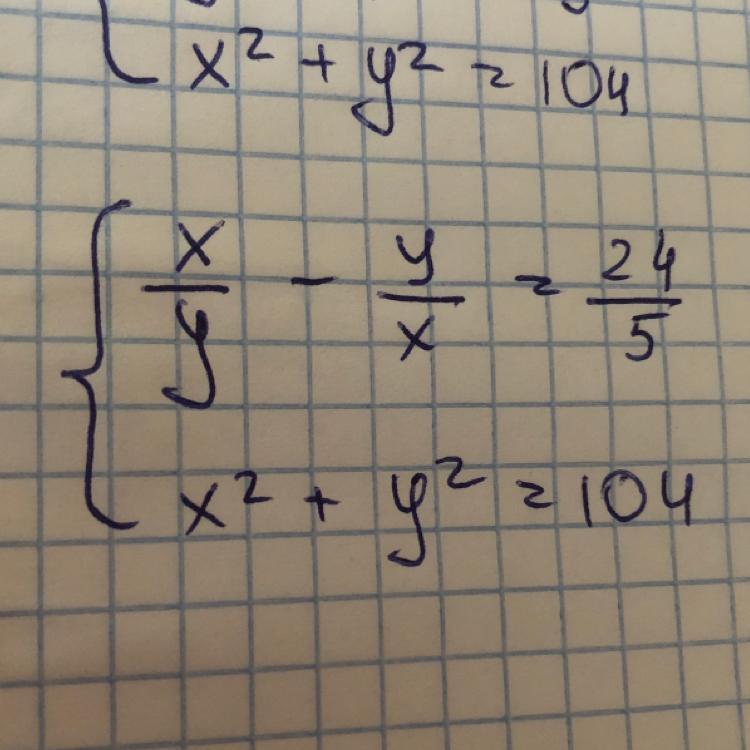 x² + y² = 104
x/y - y/x = 24/5
x² + y² = 104